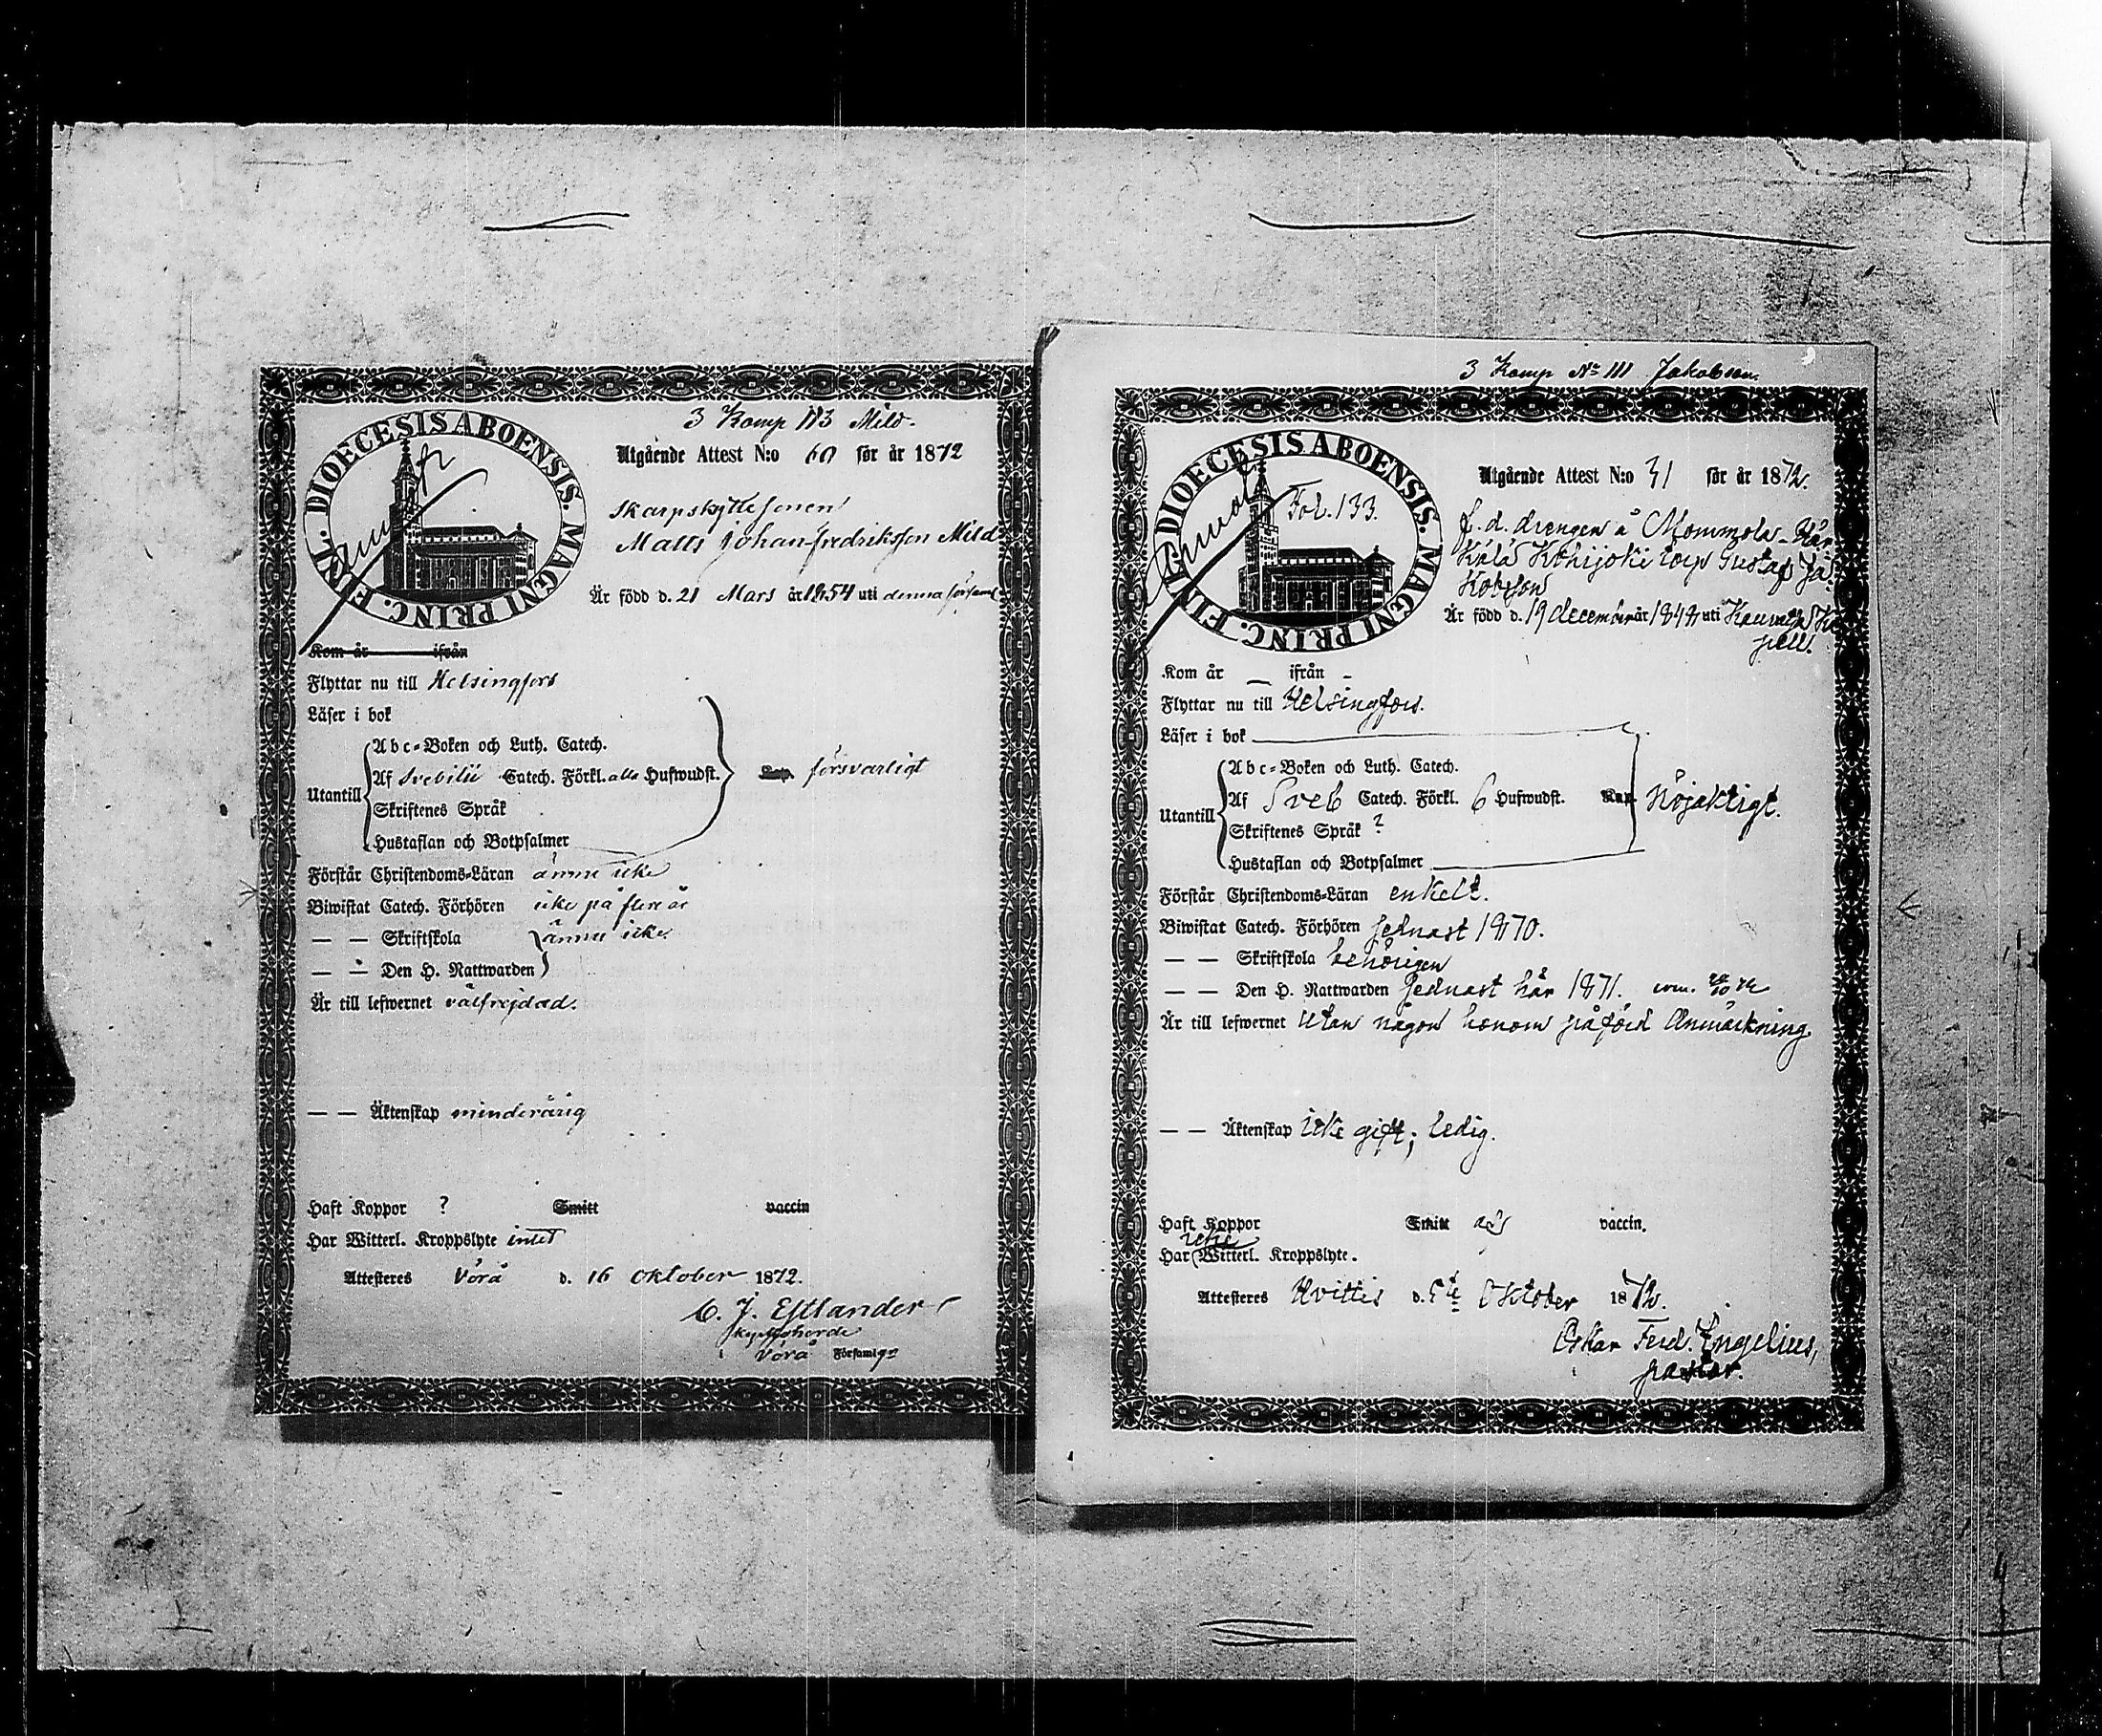 3 Komp 113 Mild.
DIOECESIS ABOENSIS. MAGNI PRINC. FINL.
Utgående Attest N:o 60 för år 1872
Skarpskyttesonen
Matts Johan Fredriksson Mild
Är född d. 21 Mars år 1854 uti denna församl.
Kom år ifrån
Flyttar nu till Helsingfors
Läser i bok
Utantill
Abc-Boken och Luth. Catech.
Af Svebilii Catech. Förkl. alla Hufwudst. Kap. försvarligt
Skriftenes Språk
Hustaflan och Botpsalmer
Förstår Christendoms-Läran ännu icke
Biwistat Catech. Förhören icke på flere år
— — Skriftskola ännu icke
— — Den H. Nattwarden
Är till lefwernet välfrejdad.
— — Äktenskap minderårig
Haft Koppor ? Smitt vaccin
Har Witterl. Kroppslyte intet
Attesteres Vörå d. 16 Oktober 1872.
C. J. Estlander
Kyrkoherde
Vörå Församlg
3 Komp No 111 Jakobson.
DIOECESIS ABOENSIS. MAGNI PRINC. FINL.
Fol. 133.
Utgående Attest N:o 31 för år 1872.
f. d. drengen å Mommola-Kär
Kälä Kohijoki torp Gustaf Ja-
kobsson
Är född d. 19 december år 1848 uti Kauvatsa Ka
pell.
Kom år — ifrån –
Flyttar nu till Helsingfors.
Läser i bok
Utantill
Abc-Boken och Luth. Catech.
Af Sveb Catech. Förkl. 6 Hufwudst. Kap. Nöjaktigt.
Skriftenes Språk ?
Hustaflan och Botpsalmer
Förstår Christendoms-Läran enkelt.
Biwistat Catech. Förhören sednast 1870.
— — Skriftskola behörigen
— — Den H. Nattwarden sednast här 1871.
Är till lefwernet utan någon honom påförd Anmärkning
— — Äktenskap icke gift; ledig.
Haft Koppor Smitt af vaccin.
icke
Har Witterl. Kroppslyte.
Attesteres Hvittis d. 5te Oktober 1872.
Oskar Ferd. Engelius,
pastor.